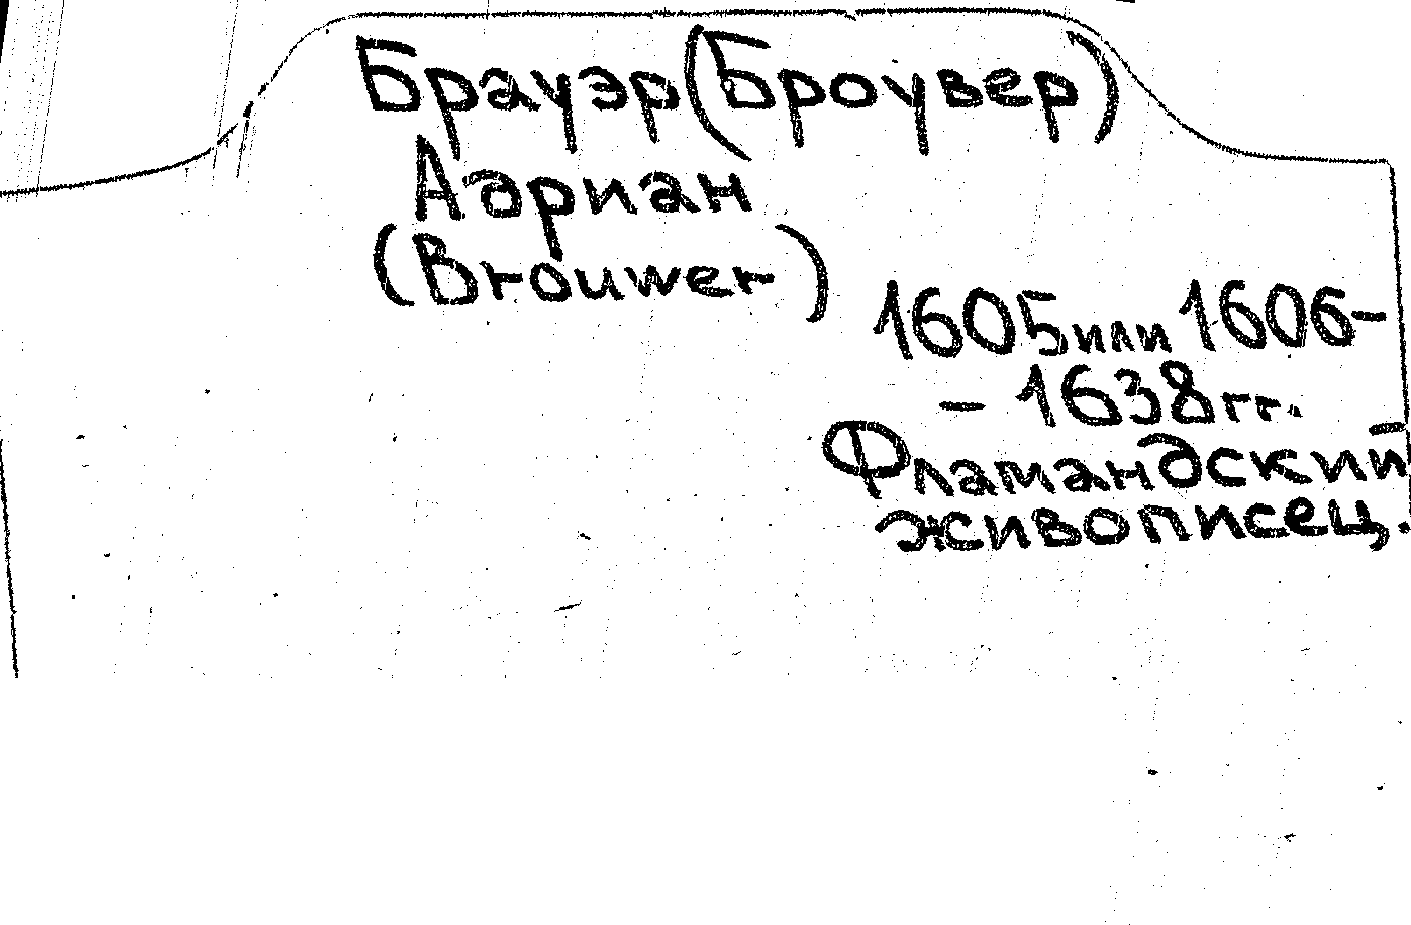 Брауэр (Броувер)
Адриан
(Brouwer)
1605 или 1606-
- 1638 гг.
Фламандский
живописец.